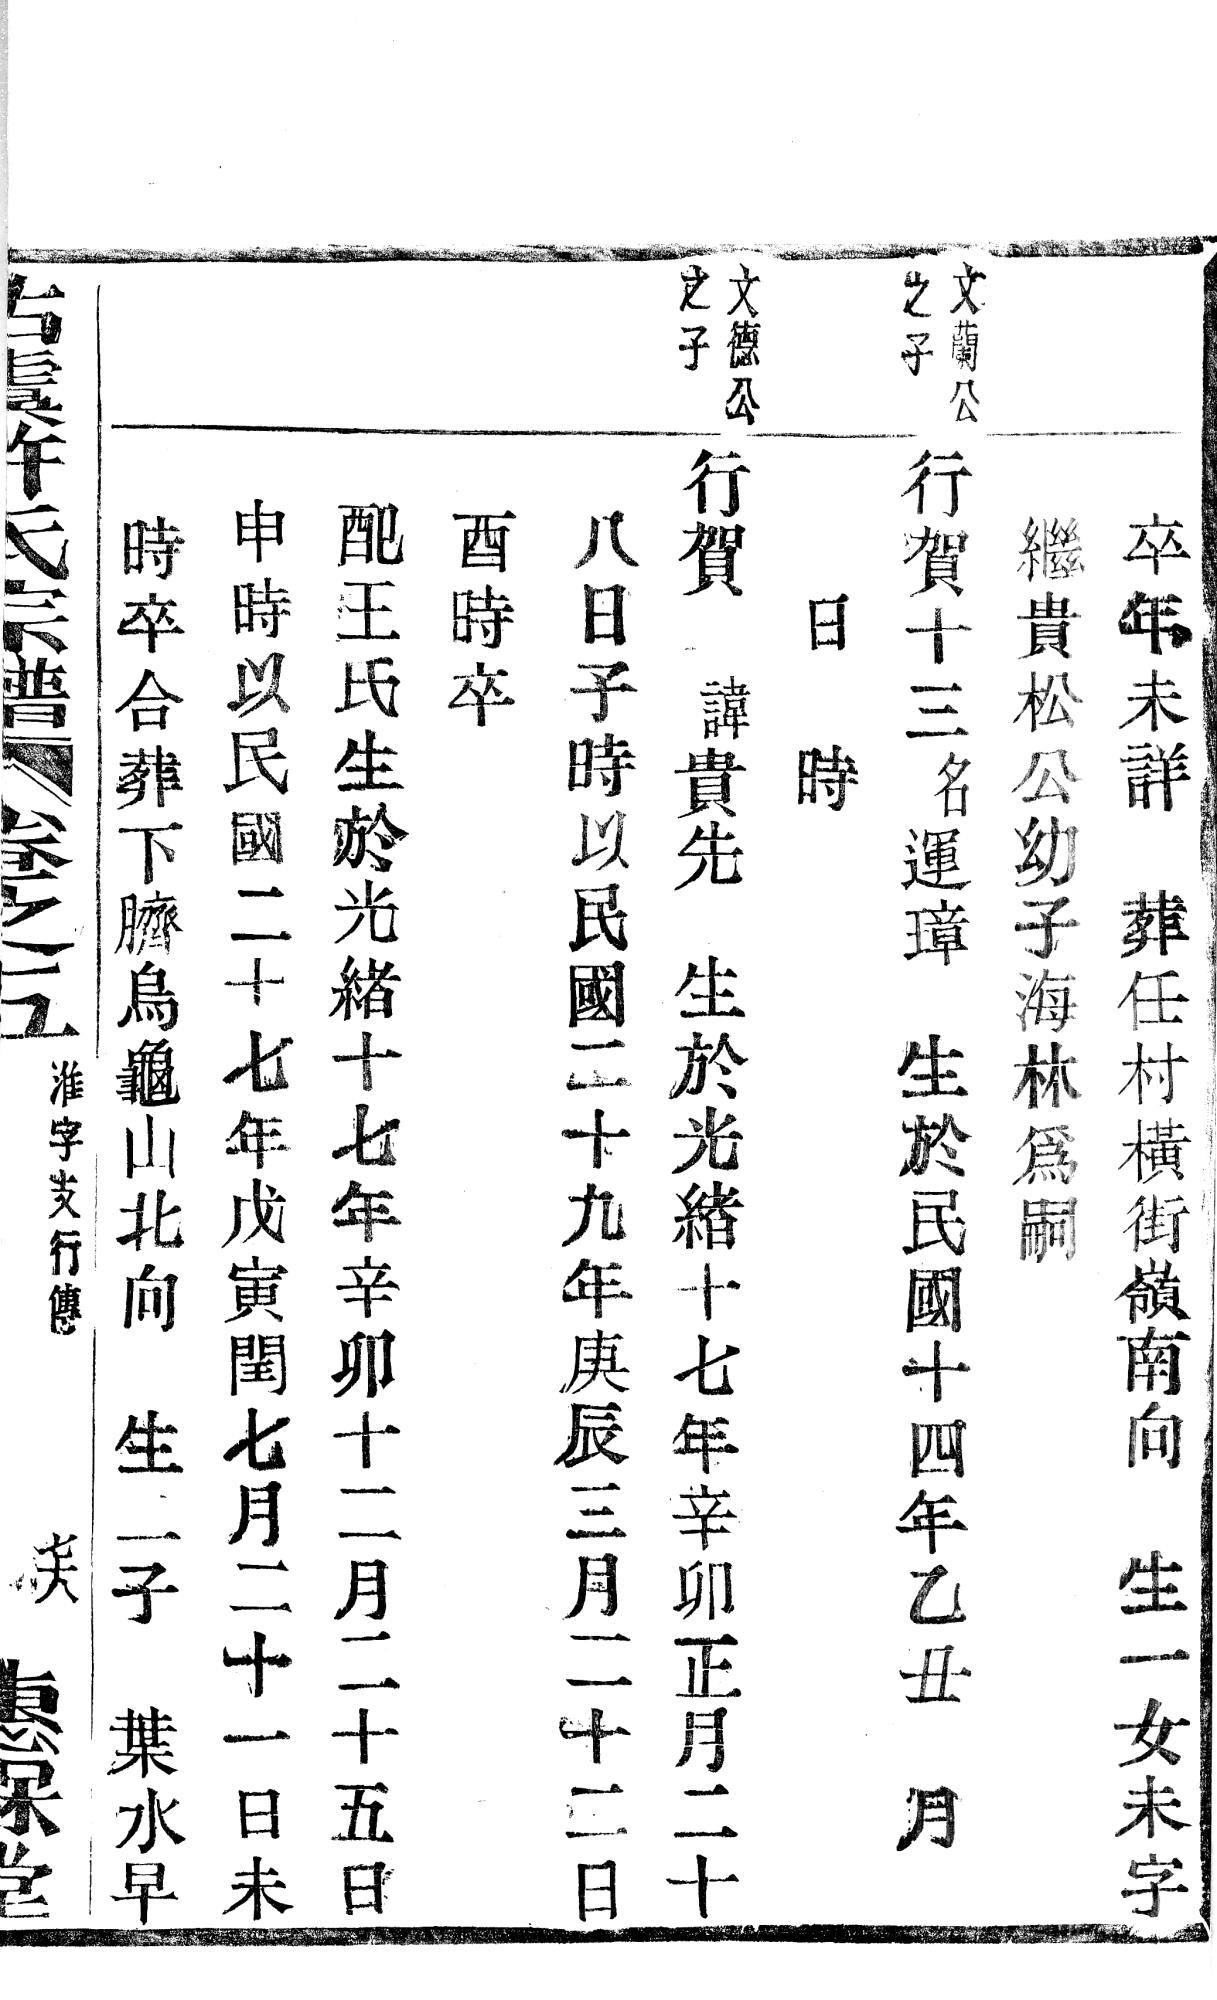 卒年未詳　葬任村橫街嶺南向　生一女未字
繼貴松公幼子海林爲嗣
文蘭公
之子
行賀十三名運璋　生於民國十四年乙丑　月
日　時
文德公
之子
行賀　諱貴先　生於光緒十七年辛卯正月二十
八日子時以民國二十九年庚辰三月二十二日
酉時卒
配王氏生於光緒十七年辛卯十二月二十五日
申時以民國二十七年戊寅閏七月二十一日未
時卒合葬下臍烏龜山北向　生二子　葉水早
古虞許氏宗譜　卷之五
淮字支行傳
惠保堂